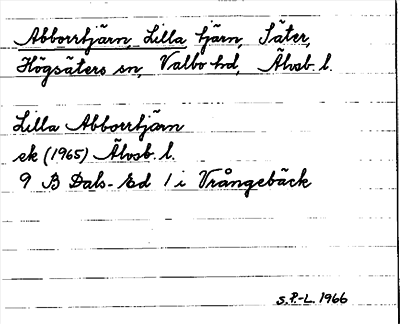 Abborrtjärn, Lilla tjärn, Säter,
Högsäters sn, Valbo hd, Älvsb. l.
Lilla Abborrtjärn
ek (1965) Älvsb. l.
9 B Dals-Ed 1 i Vrångebäck
S.P.-L. 1966